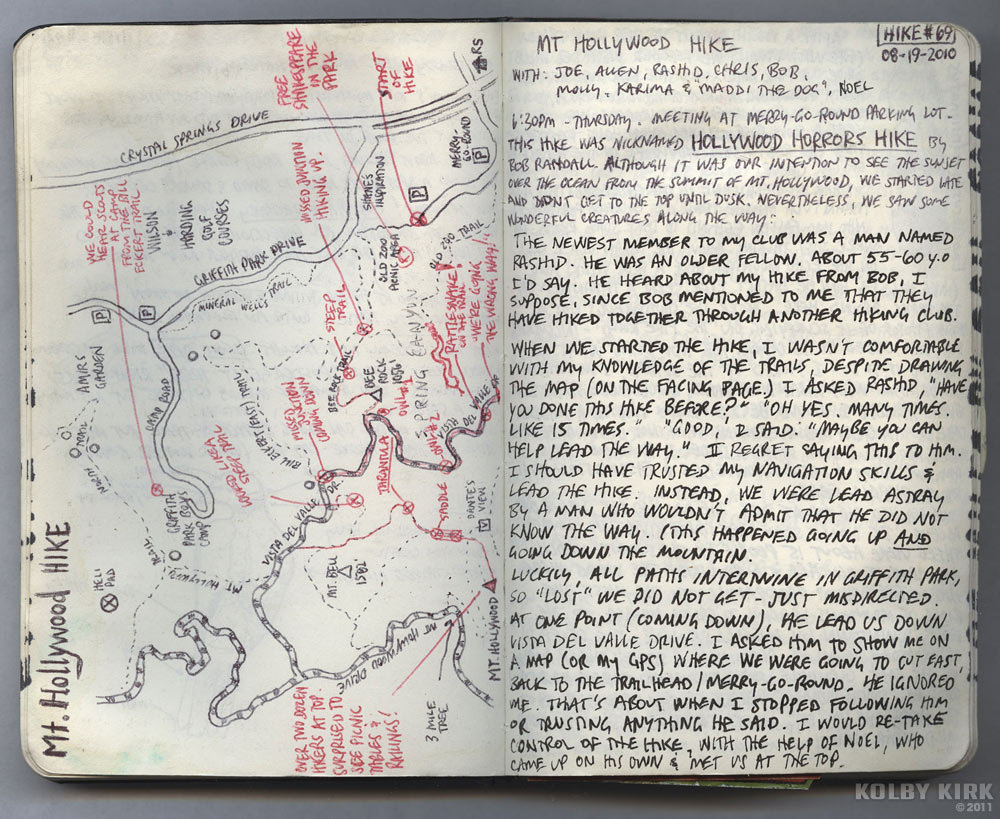 Mt. Hollywood HIKE
FREE
SHAKESPEARE
IN THE
PARK
START
OF
HIKE
RS
CRYSTAL SPRINGS DRIVE
MERRY-
GO-ROUND
P
SHANE'S
INSPIRATION
P
MISSED JUNCTION
HIKING UP.
WE COULD
HEAR SCOUTS
AT CAMP
FROM THE BILL
ECKERT TRAIL.
WILSON
HARDING
GOLF
COURSES
OLD ZOO
PICNIC AREA
OLD ZOO TRAIL
GRIFFITH PARK DRIVE
MINERAL WELLS TRAIL
P
P
STEEP
TRAIL
RATTLESNAKE!
ON THE TRAIL
"WE'RE GOING
THE WRONG WAY!"
SPRING CANYON
AMIR'S
GARDEN
CAMP ROAD
BEE ROCK TRAIL
BEE
ROCK
1056'
OWL #1
MISSED JUNCTION
COMING DOWN
OWL #2
VISTA DEL VALLE
NORTH TRAIL
LOOKED LIKE A
STEEP TRAIL
TARANTULA
VISTA DEL VALLE DR.
SADDLE
DANTE'S
VIEW
GRIFFITH
PARK BOYS
CAMP
HELI
PAD
MT. HOLLYWOOD
MT. BELL
1582'
MT. HOLLYWOOD
MT HOLLYWOOD DRIVE
OVER TWO DOZEN
HIKERS AT TOP.
SURPRISED TO
SEE PICNIC
TABLES &
RAILINGS!
3 MILE
TREE
HIKE #69
MT HOLLYWOOD HIKE
08-19-2010
WITH: JOE, ALLEN, RASHID, CHRIS, BOB,
MOLLY, KARIMA & "MADDI THE DOG", NOEL
6:30PM - THURSDAY. MEETING AT MERRY-GO-ROUND PARKING LOT.
THIS HIKE WAS NICKNAMED HOLLYWOOD HORRORS HIKE BY
BOB RANDALL. ALTHOUGH IT WAS OUR INTENTION TO SEE THE SUNSET
OVER THE OCEAN FROM THE SUMMIT OF MT. HOLLYWOOD, WE STARTED LATE
AND DIDN'T GET TO THE TOP UNTIL DUSK. NEVERTHELESS, WE SAW SOME
WONDERFUL CREATURES ALONG THE WAY:
THE NEWEST MEMBER TO MY CLUB WAS A MAN NAMED
RASHID. HE WAS AN OLDER FELLOW. ABOUT 55-60 Y.O
I'D SAY. HE HEARD ABOUT MY HIKE FROM BOB, I
SUPPOSE, SINCE BOB MENTIONED TO ME THAT THEY
HAVE HIKED TOGETHER THROUGH ANOTHER HIKING CLUB.
WHEN WE STARTED THE HIKE, I WASN'T COMFORTABLE
WITH MY KNOWLEDGE OF THE TRAILS, DESPITE DRAWING
THE MAP (ON THE FACING PAGE.) I ASKED RASHID, "HAVE
YOU DONE THIS HIKE BEFORE?" "OH YES. MANY TIMES.
LIKE 15 TIMES." "GOOD, I SAID. "MAYBE YOU CAN
HELP LEAD THE WAY." I REGRET SAYING THIS TO HIM.
I SHOULD HAVE TRUSTED MY NAVIGATION SKILLS &
LEAD THE HIKE. INSTEAD, WE WERE LEAD ASTRAY
BY A MAN WHO WOULDN'T ADMIT THAT HE DID NOT
KNOW THE WAY. (THIS HAPPENED GOING UP AND
GOING DOWN THE MOUNTAIN.
LUCKILY, ALL PATHS INTERTWINE IN GRIFFITH PARK,
SO "LOST" WE DID NOT GET - JUST MISDIRECTED
AT ONE POINT (COMING DOWN), HE LEAD US DOWN
VISTA DEL VALLE DRIVE. I ASKED HIM TO SHOW ME ON
A MAP (OR MY GPS) WHERE WE WERE GOING TO CUT EAST,
BACK TO THE TRAILHEAD/MERRY-GO-ROUND. HE IGNORED
ME. THAT'S ABOUT WHEN I STOPPED FOLLOWING HIM
OR TRUSTING ANYTHING HE SAID. I WOULD RE-TAKE
CONTROL OF THE HIKE, WITH THE HELP OF NOEL, WHO
CAME UP ON HIS OWN & MET US AT THE TOP.
KOLBY KIRK
©2011